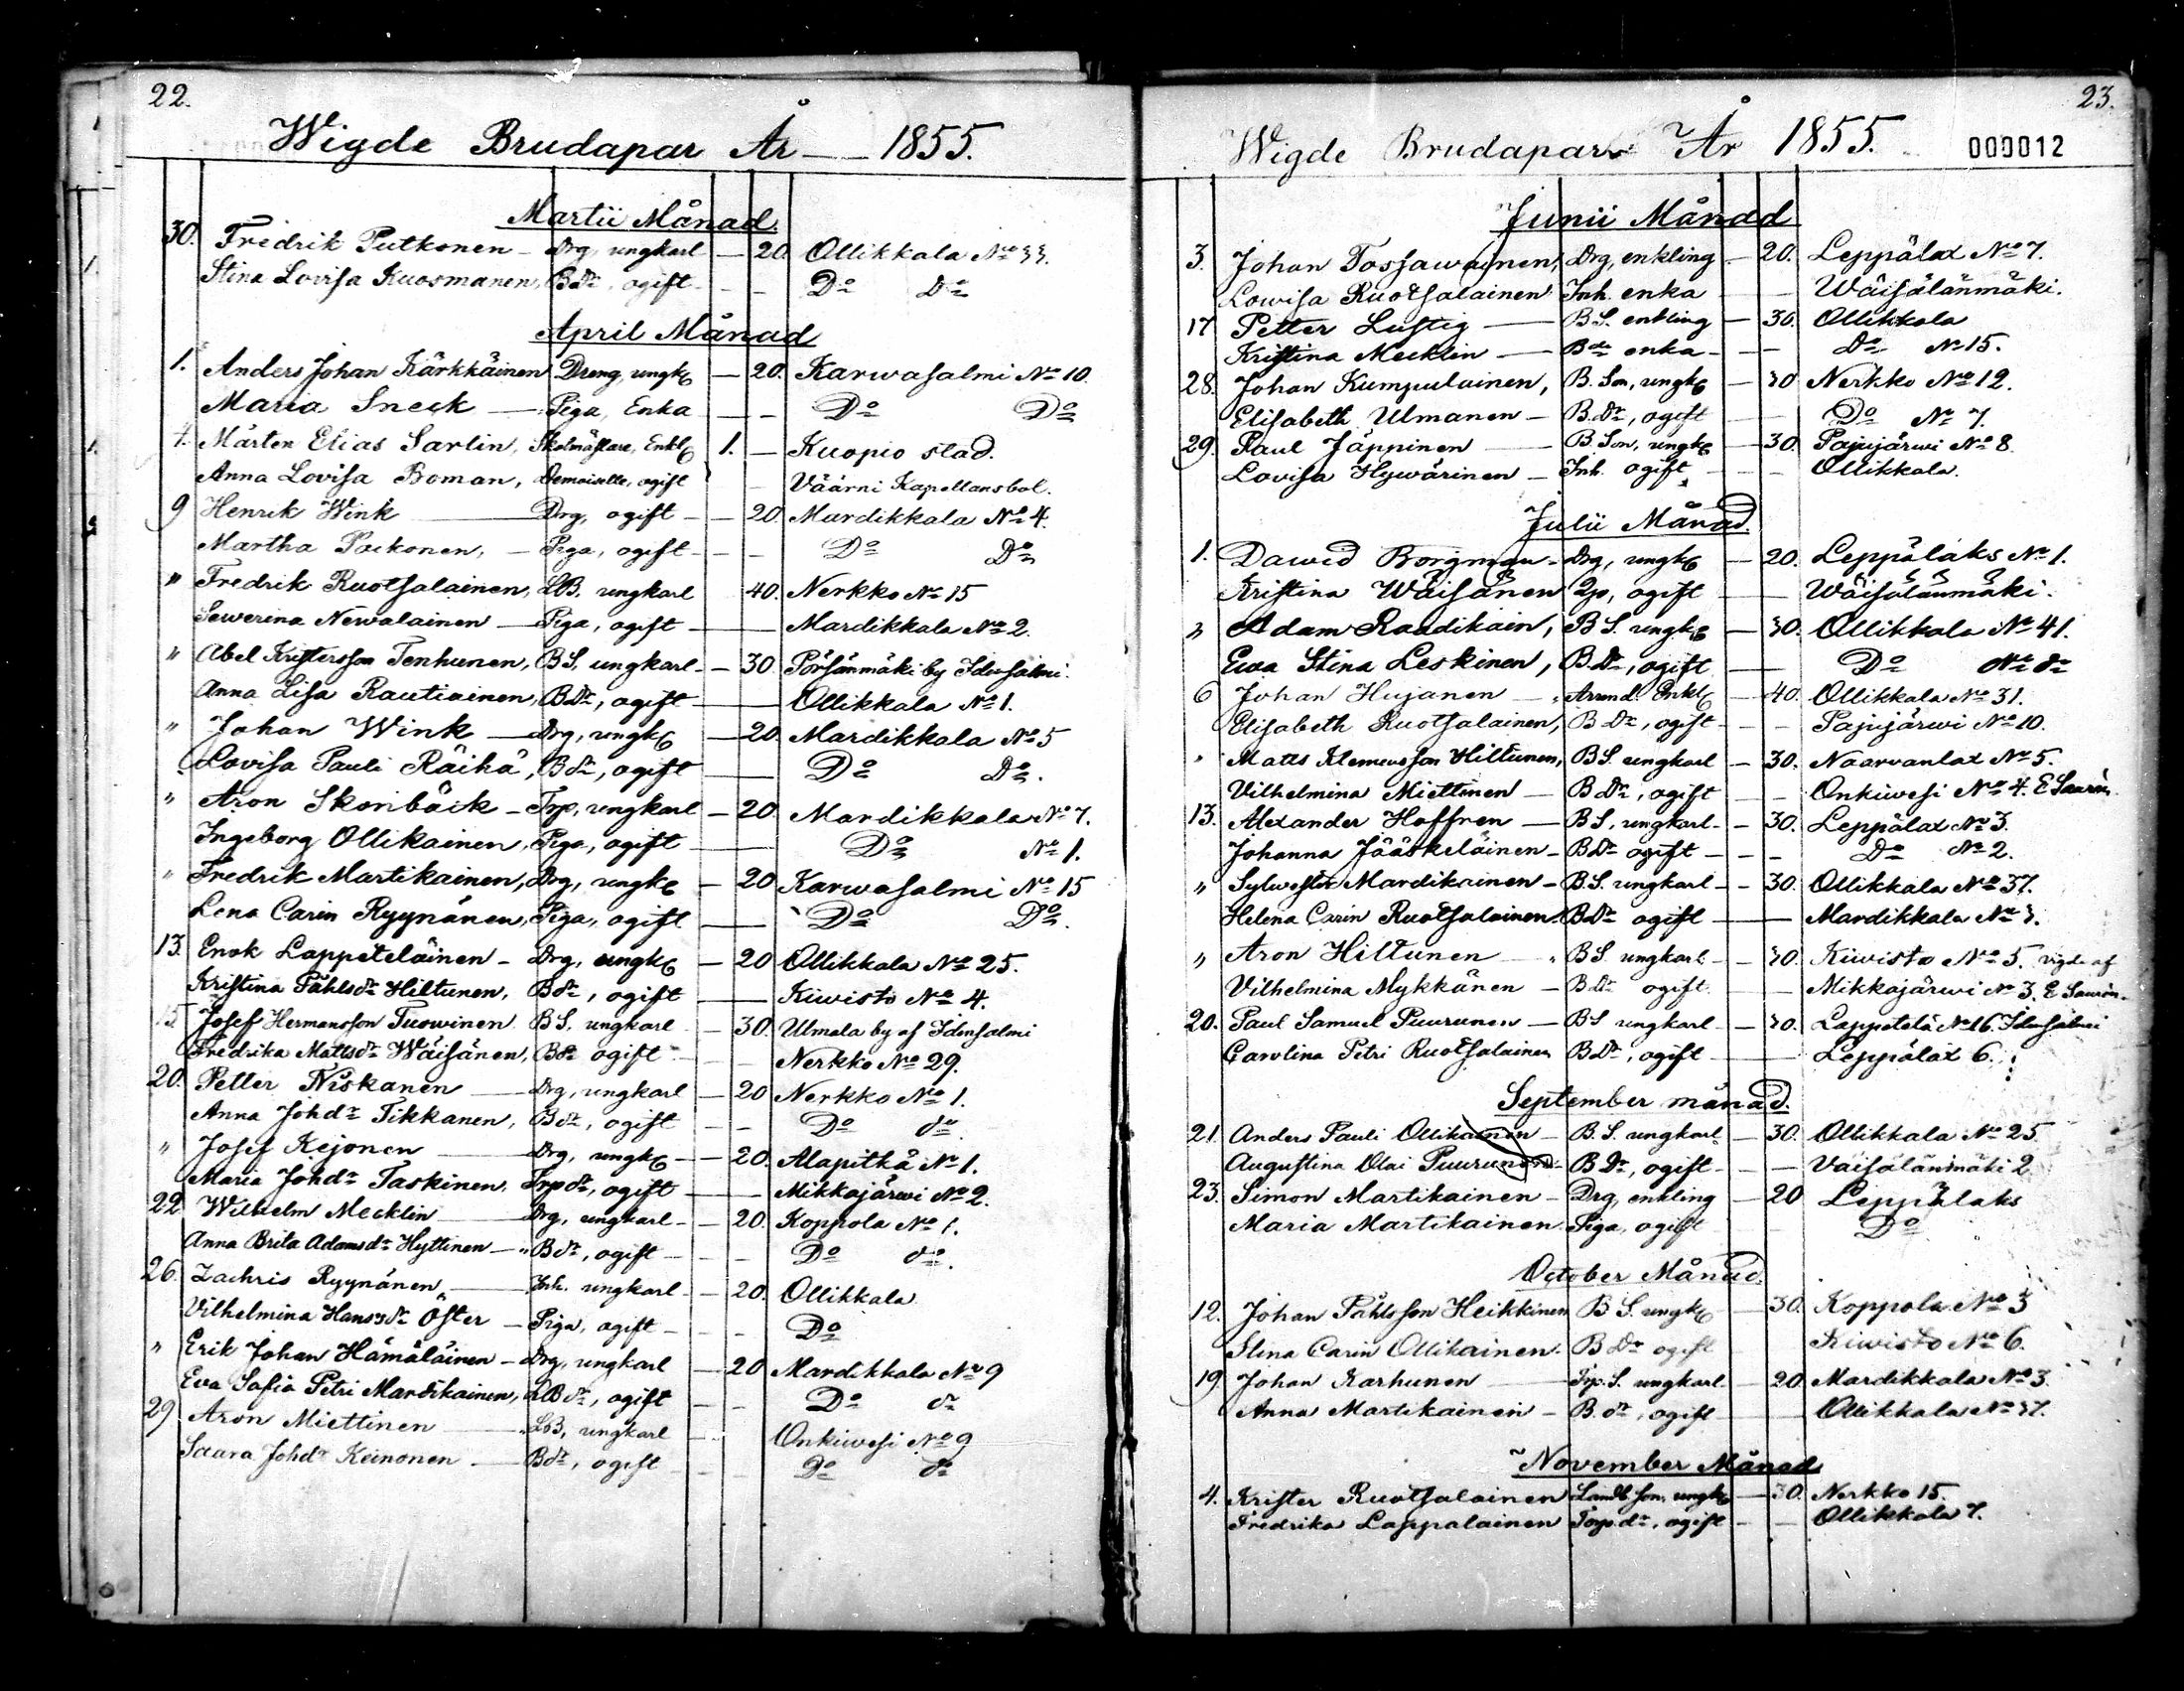 22.
Wigde Brudapar År 1855.
Martii Månad.
30. Fredrik Putkonen - Drg, ungkarl - 20. Ollikkala No 33.
Stina Lovisa Kuosmanen, Bdr, ogift - - Do Do
April Månad
1. Anders Johan Kärkkäinen Dreng, ungk - 20. Karwasalmi No 10.
Maria Sneck - Piga, Enka - - Do Do
4. Mårten Elias Sarlin, Skolmästare, Enkl 1. - Kuopio stad.
Anna Lovisa Boman, Demoiselle, ogift - Väärni Kapellansbol.
9 Henrik Wink - Drg, ogift - - 20. Mardikkala No 4.
Martha Pöckonen, - Piga, ogift - - - Do Do
" Fredrik Ruotsalainen, LB. ungkarl 40. Nerkko No 15
Sewerina Newalainen - Piga, ogift - Mardikkala No 2.
" Abel Kristersson Tenhunen, BS. ungkarl - - 30. Pörsänmäki by Idensalmi.
Anna Lisa Rautiainen, BDr, ogift - Ollikkala No 1.
" Johan Wink - Drg, ungk - 20. Mardikkala No 5
Lovisa Pauli Räihä, Bdr, ogift - Do Do.
" Aron Skonbäck - Trp, ungkarl - 20. Mardikkala No 7.
Ingeborg Ollikainen, Piga, ogift - Do No 1.
" Fredrik Martikainen, Drg, ungk - 20 Karwasalmi No 15
Lena Carin Ryynänen, Piga, ogift - Do Do.
13. Enok Lappeteläinen - Drg, ungk - 20 Ollikkala No 25.
Kristina Påhlsdr Hiltunen, Bdr, ogift - Kiwistö No 4.
15. Josef Hermansson Tuowinen BS, ungkarl - 30. Ulmala by af Idensalmi
Fredrika Mattsdr Wäisänen, Bdr ogift - - Nerkko No 29.
20. Petter Niskanen - Drg, ungkarl - 20 Nerkko No 1.
Anna Johdr Tikkanen, Bdr, ogift - - Do do.
" Josef Kejonen - Drg, ungk - - 20. Alapitkä No 1.
Maria Johdr Taskinen, Trpdr, ogift - - Mikkajärwi No 2.
22. Wilhelm Mecklin - Drg, ungkarl - - 20. Koppola No 1.
Anna Brita Adamsdr Hyttinen - " Bdr, ogift - - - Do do.
26. Zachris Ryynänen, - Inh. ungkarl - - 20. Ollikkala
Vilhelmina Hansdr Öster - Piga, ogift - - - Do
" Erik Johan Hämäläinen - Drg, ungkarl - 20 Mardikkala No 9
Eva Sofia Petri Mardikainen, LBdr, ogift - - Do do
29 Aron Miettinen - LB, ungkarl - - Onkiwesi No 9
Saara Johdr Keinonen - Bdr, ogift - - - Do do
23.
Wigde Brudapar År 1855.
000012
Junii Månad
3. Johan Tossawainen, Drg, enkling - 20. Leppälax No 7.
Lowisa Ruotsalainen Inh. enka - Wäisälänmäki.
17 Petter Lustig - B.S. enkling - 30. Ollikkala
Kristina Mecklin - Bdr enka - - - Do No 15.
28. Johan Kumpulainen, B. Son, ungk - 30 Nerkko No 12.
Elisabeth Ulmanen - B.Dr, ogift - Do No 7.
29. Paul Jäppinen - B. Son, ungk - 30. Pajujärwi No 8.
Lovisa Hywärinen - Inh. ogift - - Ollikkala.
Julii Månad.
1. Dawid Borgman - Drg, ungk - 20. Leppälaks No 1.
Kristina Wäisänen Qp, ogift - Wäisälänmäki.
" Adam Raadikain, BS. ungk - 30. Ollikkala No 41.
Ewa Stina Leskinen, B.Dr, ogift - Do No do
6 Johan Hujanen - Arrend. Enkl - 40. Ollikkala No 31.
Elisabeth Ruotsalainen, B Dr, ogift - - Pajujärwi No 10.
" Matts Klemensson Hiltunen, BS. ungkarl - 30. Naarvanlax No 5.
Vilhelmina Miettinen - B Dr, ogift - Onkiwesi No 4. E Saarin.
13. Alexander Hoffren - BS, ungkarl - - 30. Leppälax No 3.
Johanna Jääskeläinen - BDr ogift - - - Do No 2.
" Sylwester Mardikainen - B.S. ungkarl - - 30. Ollikkala No 37.
Helena Carin Ruotsalainen - BDr ogift - Mardikkala No 3.
" Aron Hiltunen - BS ungkarl - - 30. Kiwistö No 5. vigde af
Vilhelmina Mykkänen - BDr ogift - Mikkajärwi No 3. E Saarin.
20. Paul Samuel Puurunen - BS ungkarl - 30. Lappetelä No 16. Idensalmi
Carolina Petri Ruotsalainen BDr, ogift - Leppälax 6.
September månad.
21. Anders Pauli Ollikainen - B.S. ungkarl - 30. Ollikkala No 25
Augustina Olai Puurunen - B Dr, ogift - - Väisälänmäki 2
23. Simon Martikainen - Drg, enkling - 20 Leppälaks
Maria Martikainen. Piga, ogift Do
October Månad.
12. Johan Påhlsson Heikkinen BS. ungk - 30. Koppola No 3
Stina Carin Ollikainen. B Dr ogift Kiwistö No 6.
19. Johan Karhunen - Trp.S. ungkarl - 20 Mardikkala No 3.
Anna Martikainen - B. dr, ogift - Ollikkala No 37.
November Månad
4. Krister Ruotsalainen Landb son. ungk - 30. Nerkko 15.
Fredrika Lappalainen Torp.dr, ogift - - Ollikkala 7.